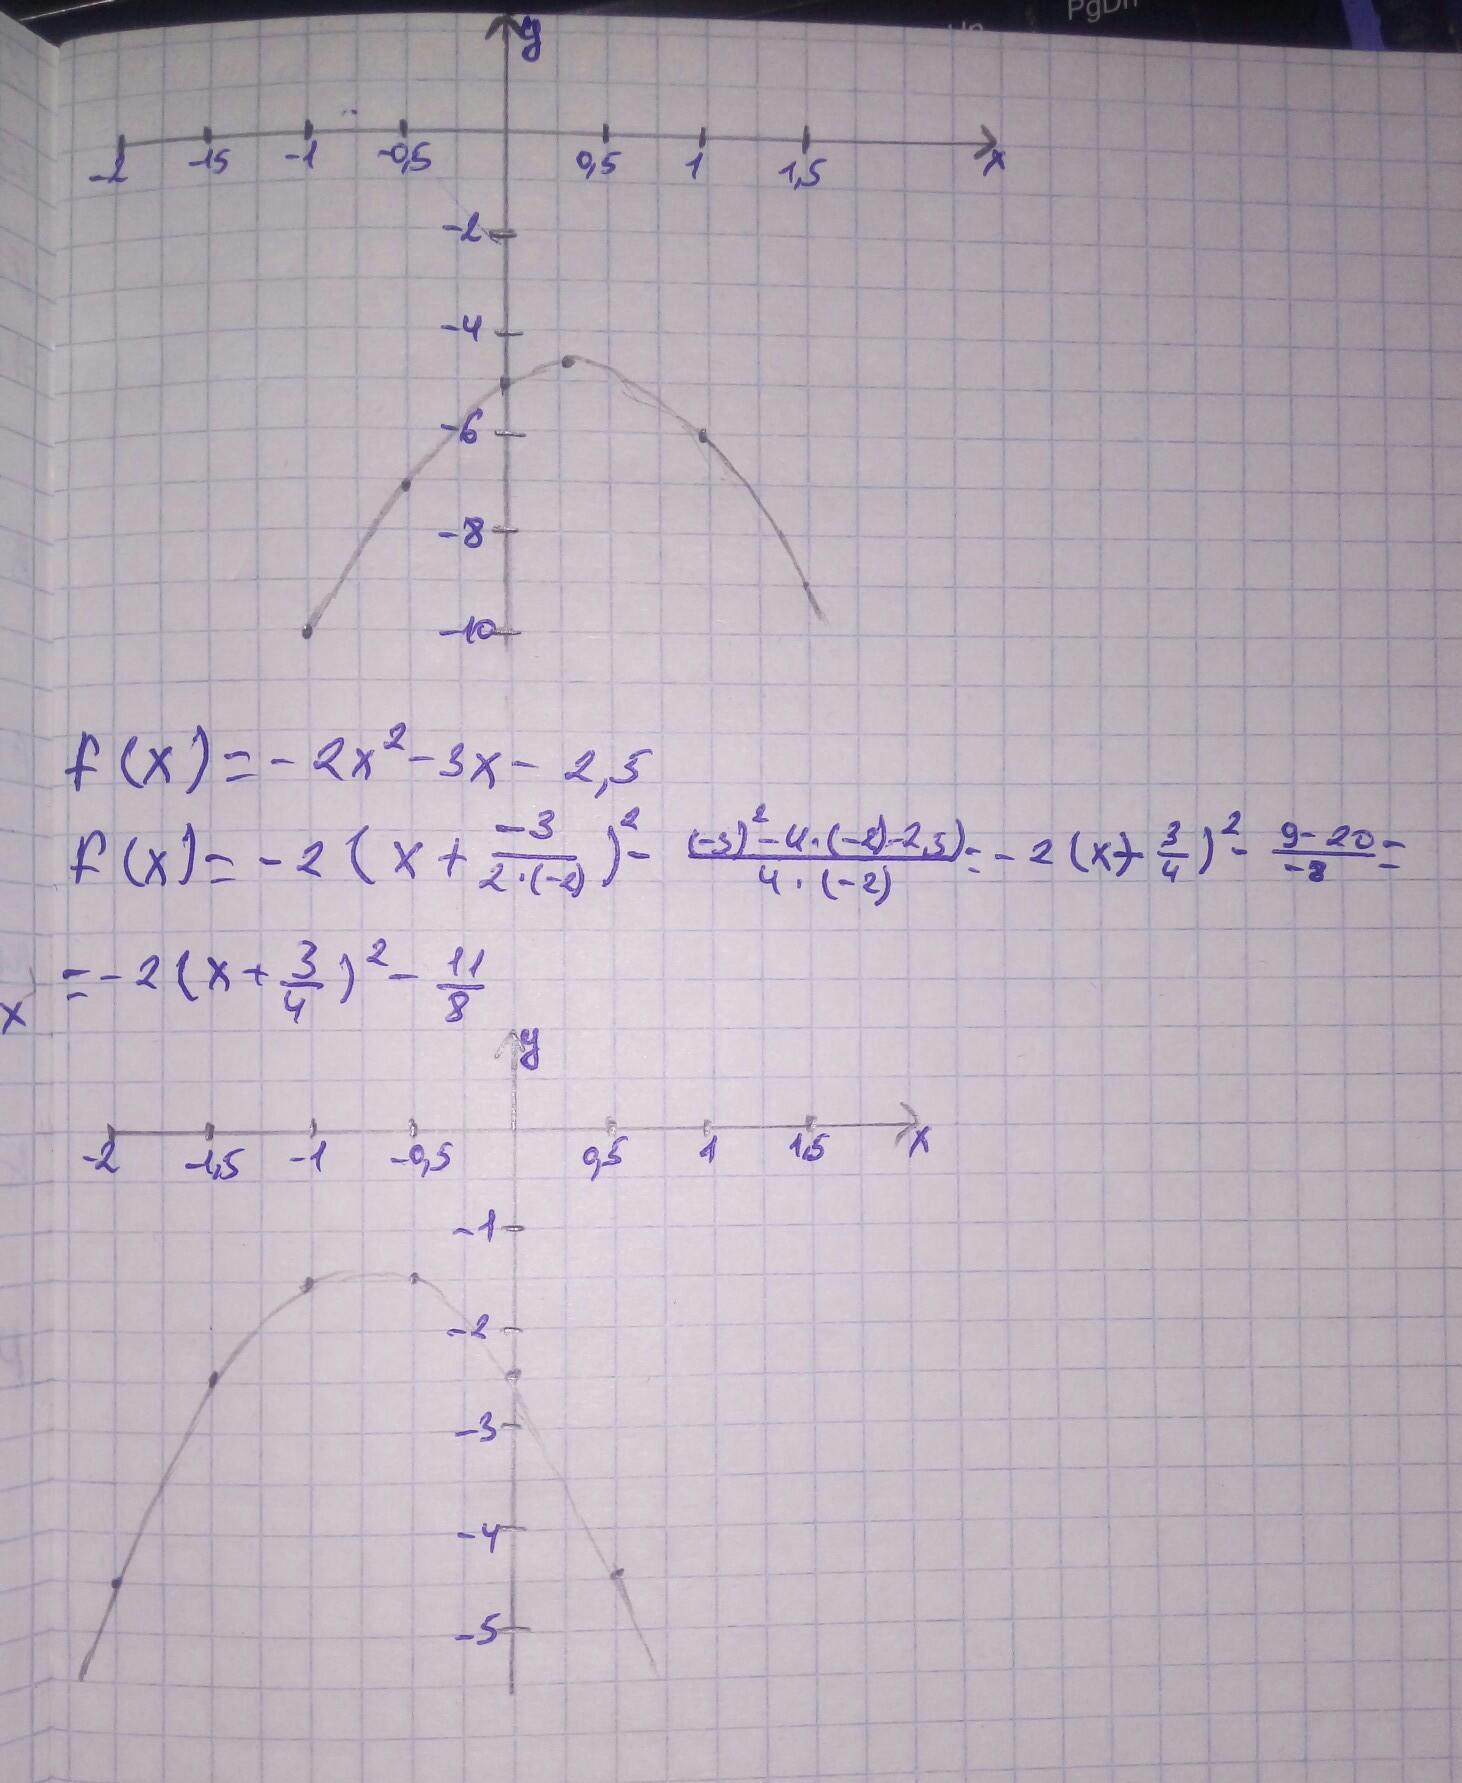 PgDn
y
-2 -15 -1 -0,5 0,5 1 1,5 x
-2
-4
-6
-8
-10
f(x)=-2x²-3x-2,5
f(x)=-2(x+\frac{-3}{2·(-2)})²-\frac{(-3)²-4·(-2)-2,5)}{4·(-2)}=-2(x+\frac{3}{4})²-\frac{9-20}{-8}=
=-2(x+\frac{3}{4})²-\frac{11}{8}
x
y
-2 -1,5 -1 -0,5 0,5 1 1,5 x
-1
-2
-3
-4
-5